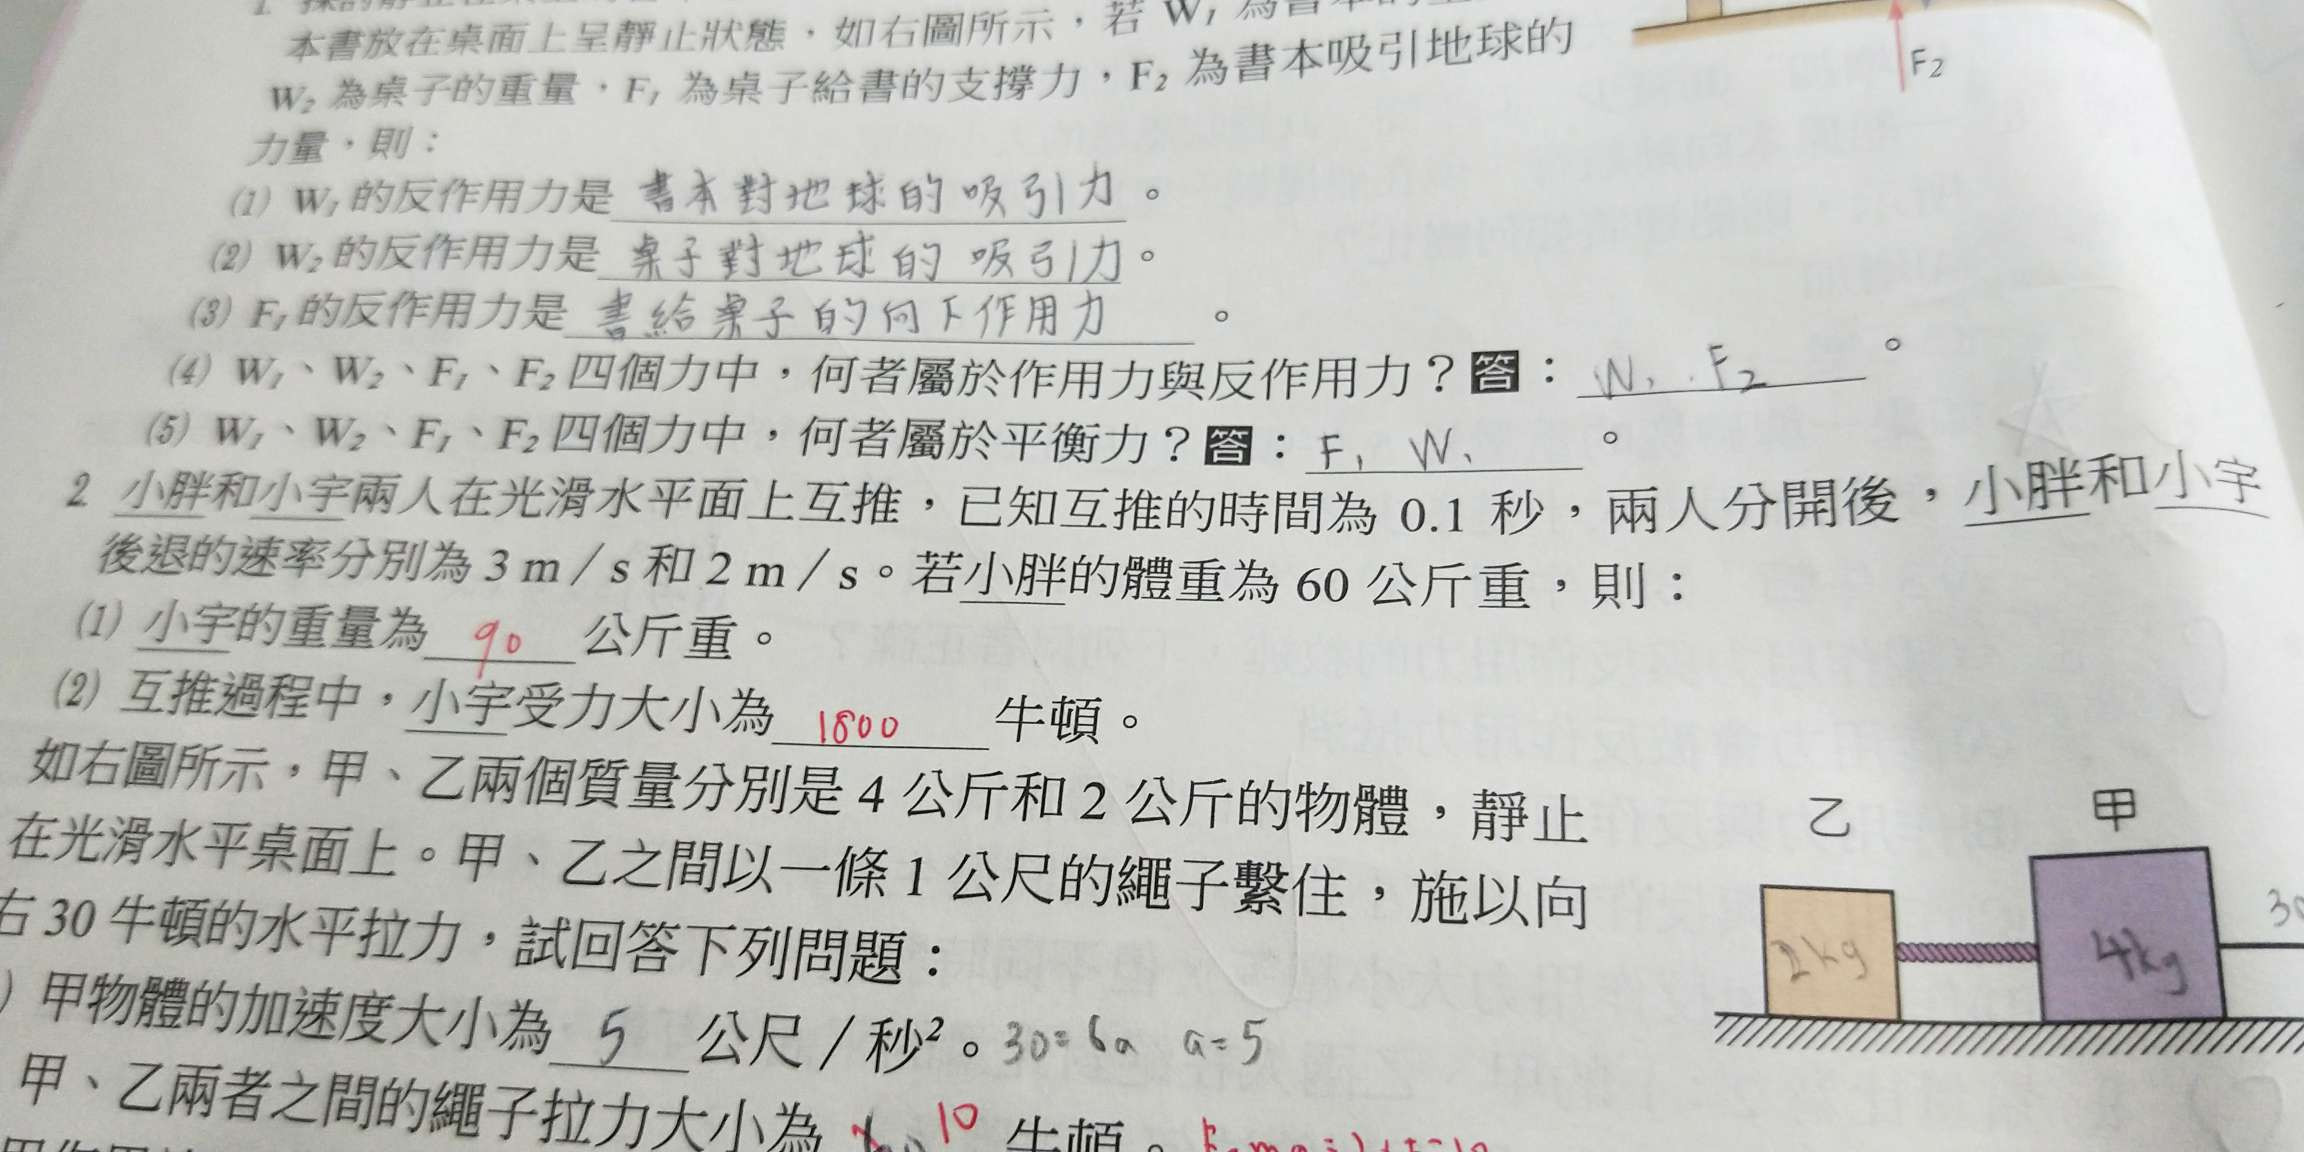 本書放在桌面上呈靜止狀態，如右圖所示，若 W₁ 為
W₂ 為桌子的重量，F₁ 為桌子給書的支撐力，F₂ 為書本吸引地球的
力量，則：
F₂
(1) W₁ 的反作用力是 書本對地球的吸引力 。
(2) W₂ 的反作用力是 桌子對地球的吸引力 。
(3) F₁ 的反作用力是 書給桌子的向下作用力 。
(4) W₁、W₂、F₁、F₂ 四個力中，何者屬於作用力與反作用力？答： W₁ . F₂ 。
(5) W₁、W₂、F₁、F₂ 四個力中，何者屬於平衡力？答： F₁ W₁ 。
2 小胖和小宇兩人在光滑水平面上互推，已知互推的時間為 0.1 秒，兩人分開後，小胖和小宇
後退的速率分別為 3 m／s 和 2 m／s。若小胖的體重為 60 公斤重，則：
(1) 小宇的重量為 90 公斤重。
(2) 互推過程中，小宇受力大小為 1800 牛頓。
如右圖所示，甲、乙兩個質量分別是 4 公斤和 2 公斤的物體，靜止
在光滑水平桌面上。甲、乙之間以一條 1 公尺的繩子繫住，施以向
右 30 牛頓的水平拉力，試回答下列問題：
乙 甲
2kg 4kg 30
) 甲物體的加速度大小為 5 公尺／秒²。 30=6a a=5
甲、乙兩者之間的繩子拉力大小為 10 牛頓。